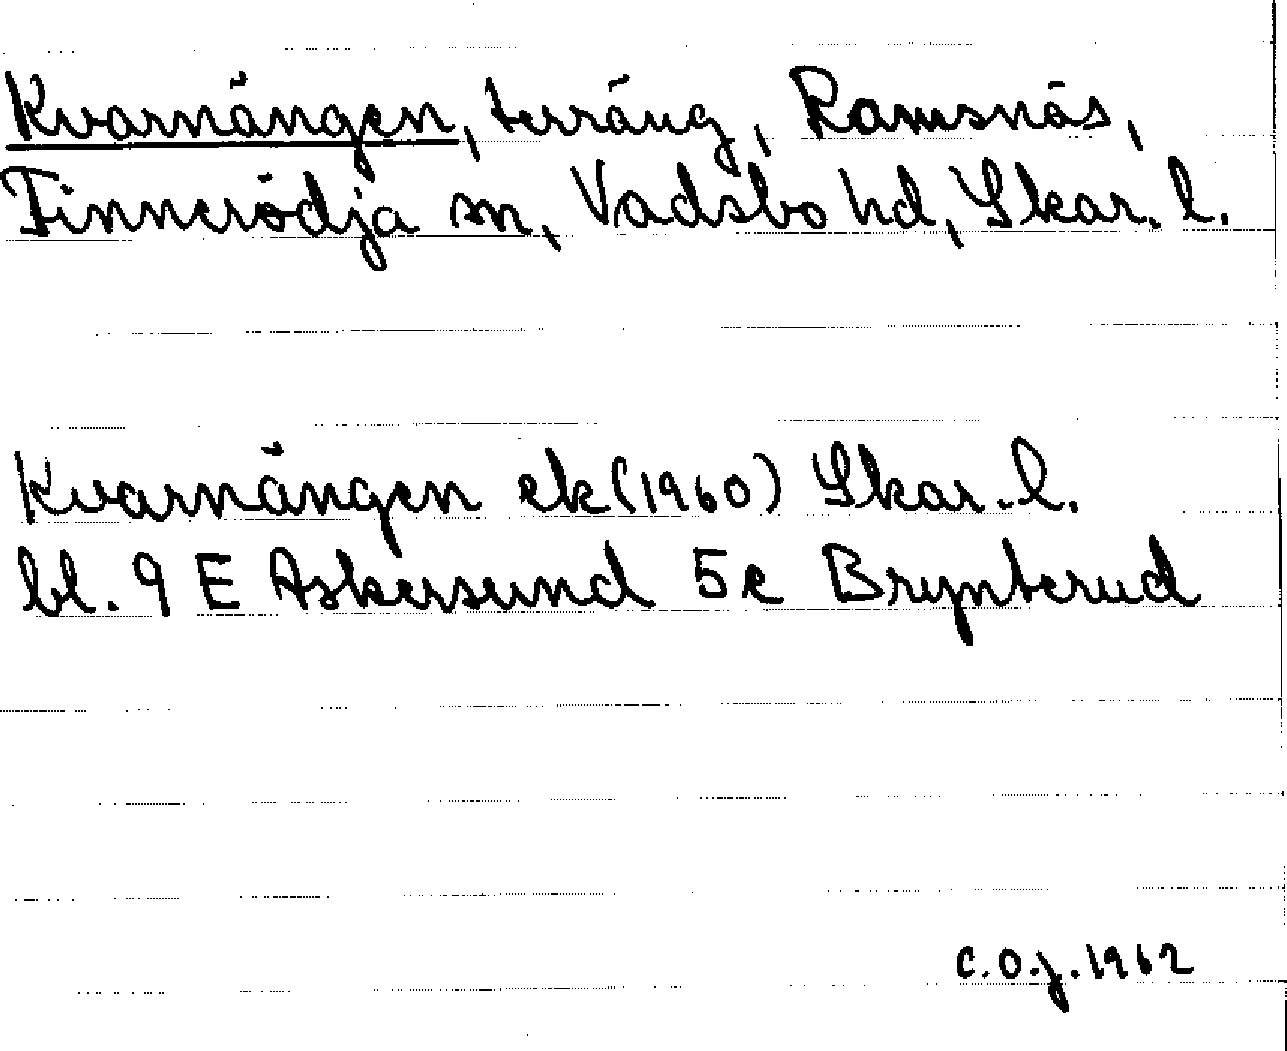 Kvarnängen, terräng, Ramsnäs,
Finnerödja sn, Vadsbo hd, Skar. l.
Kvarnängen ek (1960) Skar. l.
bl. 9 E Askersund 5e Brynterud
C.O.J. 1962